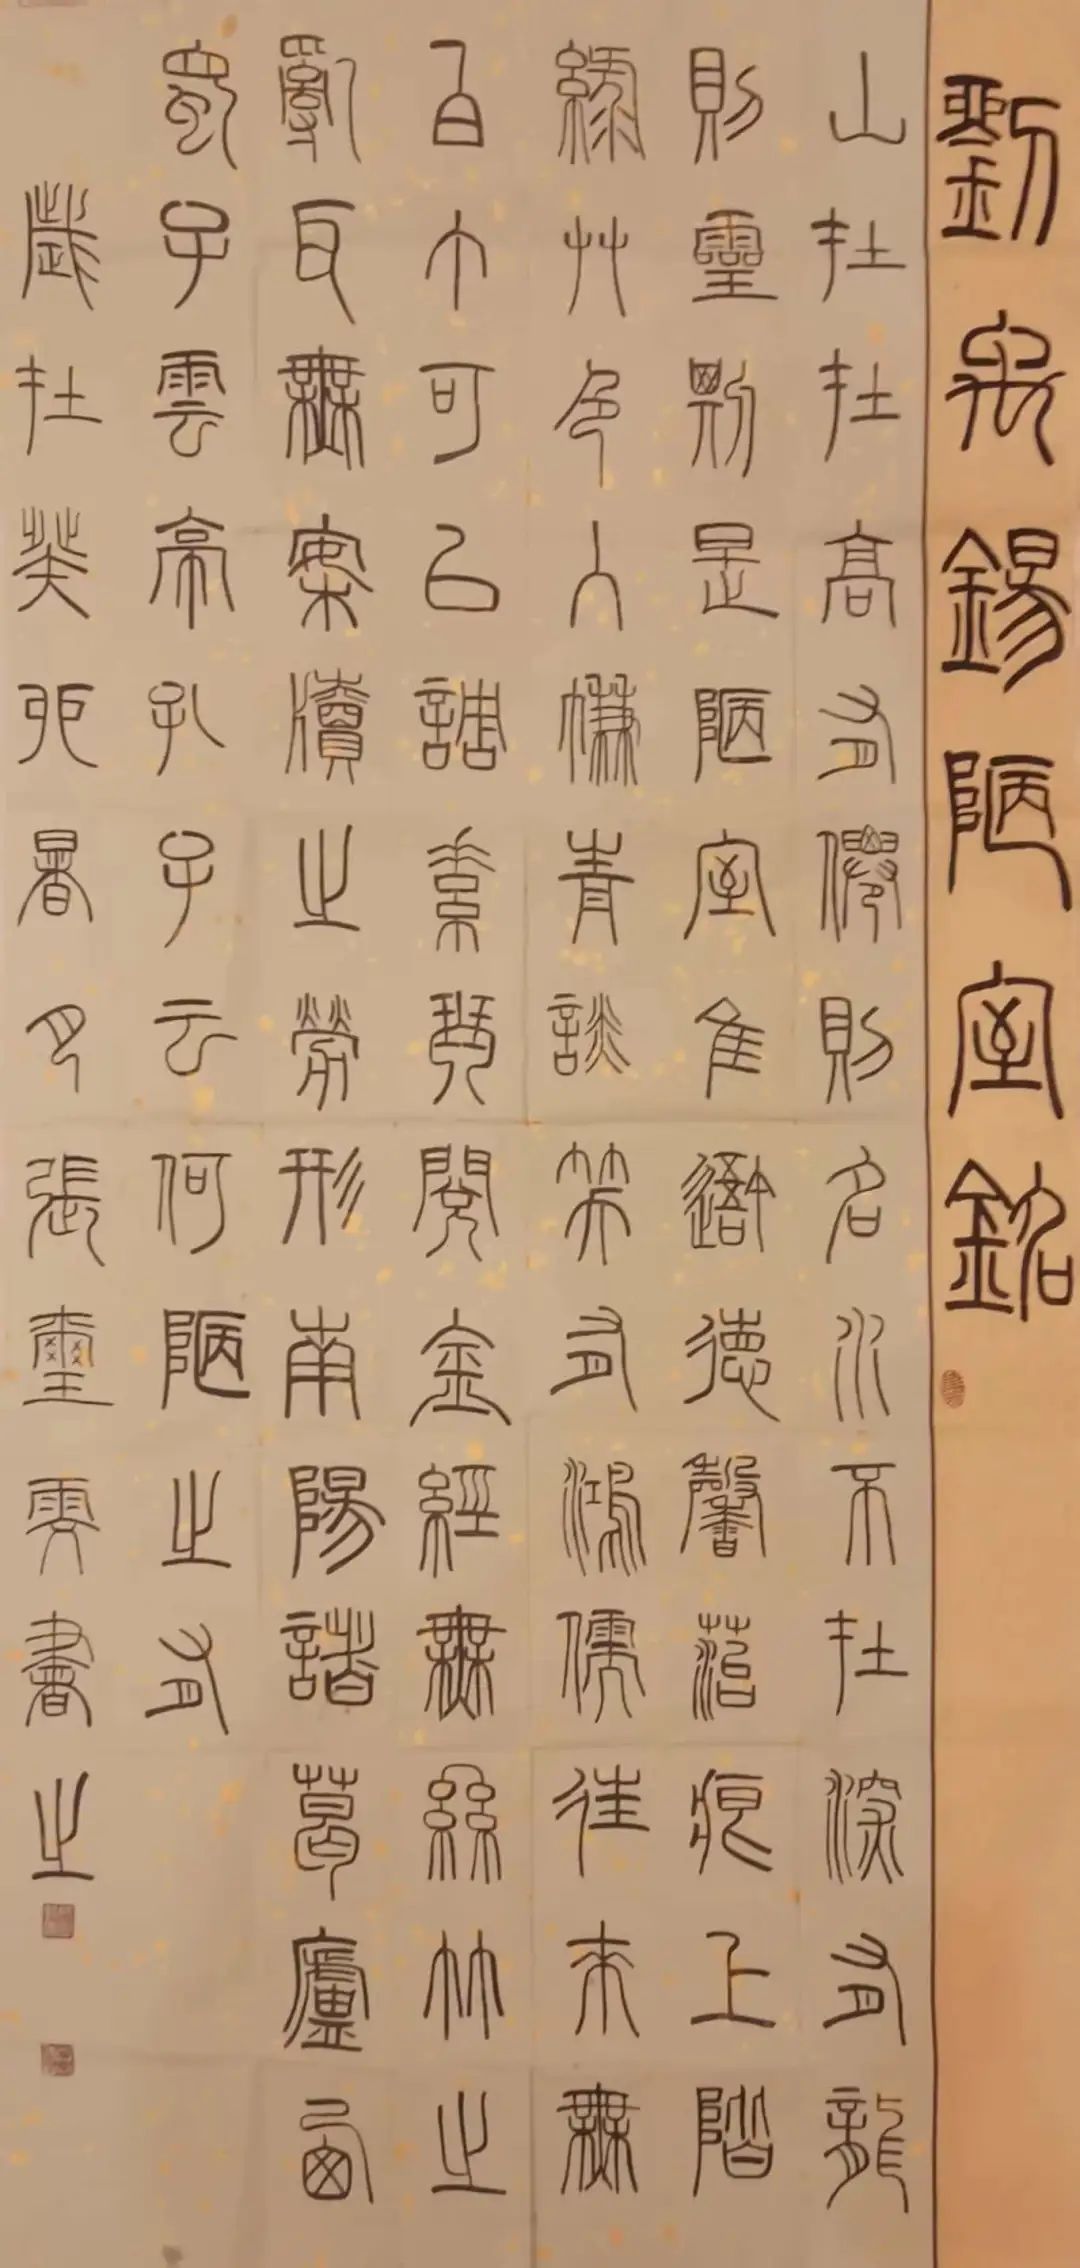 劉禹錫陋室銘
山在在高有僊則名水不在深有龍
則靈斯是陋室隹吾德馨菭痕上階
綠艸色入㡘青談笑有鴻儒往來無
白丁可以調素琴閱金經無絲竹之
亂耳無案牘之勞形南陽諸葛廬西
蜀子雲亭孔子云何陋之有
歲在癸卯暑月張璽書之